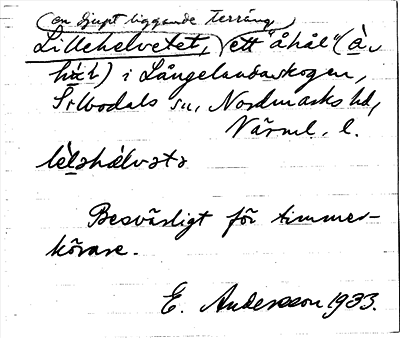 (en djupt liggande terräng)
Lillehelvetet, ett "åhål" (å,
hål) i Långelandsskogen,
Silbodals sn, Nordmarks hd,
Värml. l.
lìləhèlvətə
Besvärligt för timmer-
körare.
E. Andersson 1933.